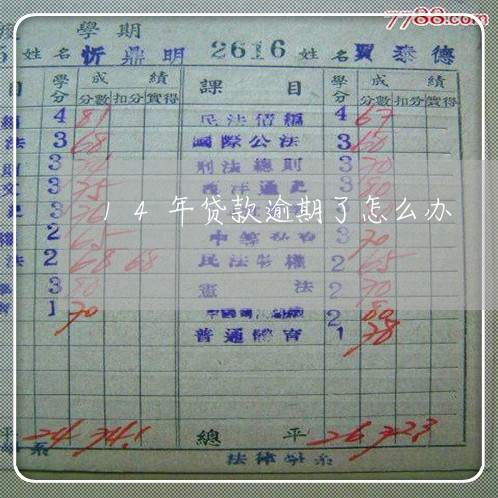 7788.com
學期
姓名 忻鼎明 2616 姓名 賈泰德
目 學分 成績 課目 學分 成績
分數 扣分 實得 分數 扣分 實得
4 81 民法債編 4 67
法 3 68 國際公法 3 60
3 刑法總則 3 70
3 75 西洋通史 3 80
14年贷款逾期了怎么办
2 65 3 70
法 2 68 68 民法物權 2 65
3 80 憲法 2 70
1 70 2 80
普通體育 1 78
平 24 74.1 總平 26 72.3
系 法律學系